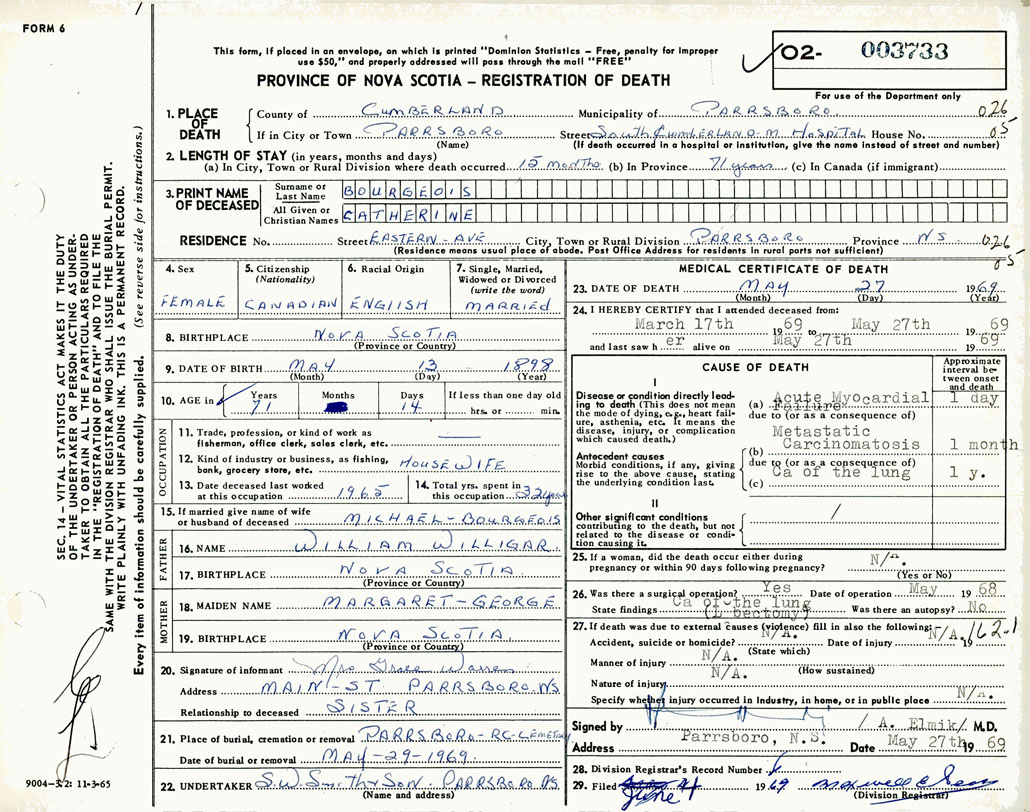 FORM 6
This form, if placed in an envelope, on which is printed "Dominion Statistics – Free, penalty for improper
use $50," and properly addressed will pass through the mail "FREE"
PROVINCE OF NOVA SCOTIA – REGISTRATION OF DEATH
O2- 003733
For use of the Department only
1. PLACE OF DEATH
County of CUMBERLAND Municipality of PARRSBORO 026
If in City or Town PARRSBORO Street SOUTH CUMBERLAND-M. HOSPITAL House No. 05
(Name) (If death occurred in a hospital or institution, give the name instead of street and number)
2. LENGTH OF STAY (in years, months and days)
(a) In City, Town or Rural Division where death occurred 15 months (b) In Province 71 years (c) In Canada (if immigrant)
3. PRINT NAME OF DECEASED
Surname or Last Name BOURGEOIS
All Given or Christian Names CATHERINE
RESIDENCE No. Street EASTERN-AVE City, Town or Rural Division PARRSBORO Province N.S. 026
(Residence means usual place of abode. Post Office Address for residents in rural parts not sufficient) 05
4. Sex FEMALE
5. Citizenship (Nationality) CANADIAN
6. Racial Origin ENGLISH
7. Single, Married, Widowed or Divorced (write the word) MARRIED
8. BIRTHPLACE NOVA SCOTIA
(Province or Country)
9. DATE OF BIRTH MAY 13 1898
(Month) (Day) (Year)
10. AGE in Years 71 Months Days 14 If less than one day old hrs. or min.
OCCUPATION
11. Trade, profession, or kind of work as
fisherman, office clerk, sales clerk, etc.
12. Kind of industry or business, as fishing, HOUSEWIFE
bank, grocery store, etc.
13. Date deceased last worked at this occupation 1965
14. Total yrs. spent in this occupation 32 years
15. If married give name of wife or husband of deceased MICHAEL-BOURGEOIS
FATHER
16. NAME WILLIAM WILLIGAR
17. BIRTHPLACE NOVA SCOTIA
(Province or Country)
MOTHER
18. MAIDEN NAME MARGARET-GEORGE
19. BIRTHPLACE NOVA SCOTIA.
(Province or Country)
20. Signature of informant Mrs Grace Warren
Address MAIN-ST. PARRSBORO. NS
Relationship to deceased SISTER
21. Place of burial, cremation or removal PARRSBORO-RC-CEMETERY
Date of burial or removal MAY-29-1969.
22. UNDERTAKER S.W. Smith & Son PARRSBORO NS
(Name and address)
MEDICAL CERTIFICATE OF DEATH
23. DATE OF DEATH MAY 27 1969
(Month) (Day) (Year)
24. I HEREBY CERTIFY that I attended deceased from:
March 17th 1969 to May 27th 1969
and last saw her alive on May 27th 1969
CAUSE OF DEATH
Approximate interval between onset and death
I
Disease or condition directly leading to death (This does not mean the mode of dying, e.g., heart failure, asthenia, etc. It means the disease, injury, or complication which caused death.)
(a) Acute Myocardial Failure 1 day
due to (or as a consequence of
Antecedent causes
Morbid conditions, if any, giving rise to the above cause, stating the underlying condition last.
(b) Metastatic Carcinomatosis 1 month
due to (or as a consequence of)
(c) Ca of the lung 1 y.
II
Other significant conditions
contributing to the death, but not related to the disease or condition causing it. /
25. If a woman, did the death occur either during
pregnancy or within 90 days following pregnancy? N/A
(Yes or No)
26. Was there a surgical operation? Yes Date of operation May 1968
State findings Ca of the lung Was there an autopsy? No
27. If death was due to external causes (violence) fill in also the following:— 162-1
Accident, suicide or homicide? N/A. Date of injury N/A. 19
(State which)
Manner of injury N/A.
(How sustained)
Nature of injury N/A.
Specify whether injury occurred in Industry, in home, or in public place N/A.
Signed by / A. Elmik/ M.D.
Address Parrsboro, N.S. Date May 27th 1969
28. Division Registrar's Record Number
29. Filed June 4 1969
(Division Registrar)
SEC. 14 – VITAL STATISTICS ACT MAKES IT THE DUTY
OF THE UNDERTAKER OR PERSON ACTING AS UNDER-
TAKER TO OBTAIN ALL THE PARTICULARS REQUIRED
IN THE "REGISTRATION OF DEATH" AND TO FILE THE
SAME WITH THE DIVISION REGISTRAR WHO SHALL ISSUE THE BURIAL PERMIT.
WRITE PLAINLY WITH UNFADING INK. THIS IS A PERMANENT RECORD.
Every item of information should be carefully supplied. (See reverse side for instructions.)
9004-3.2: 11-3-65